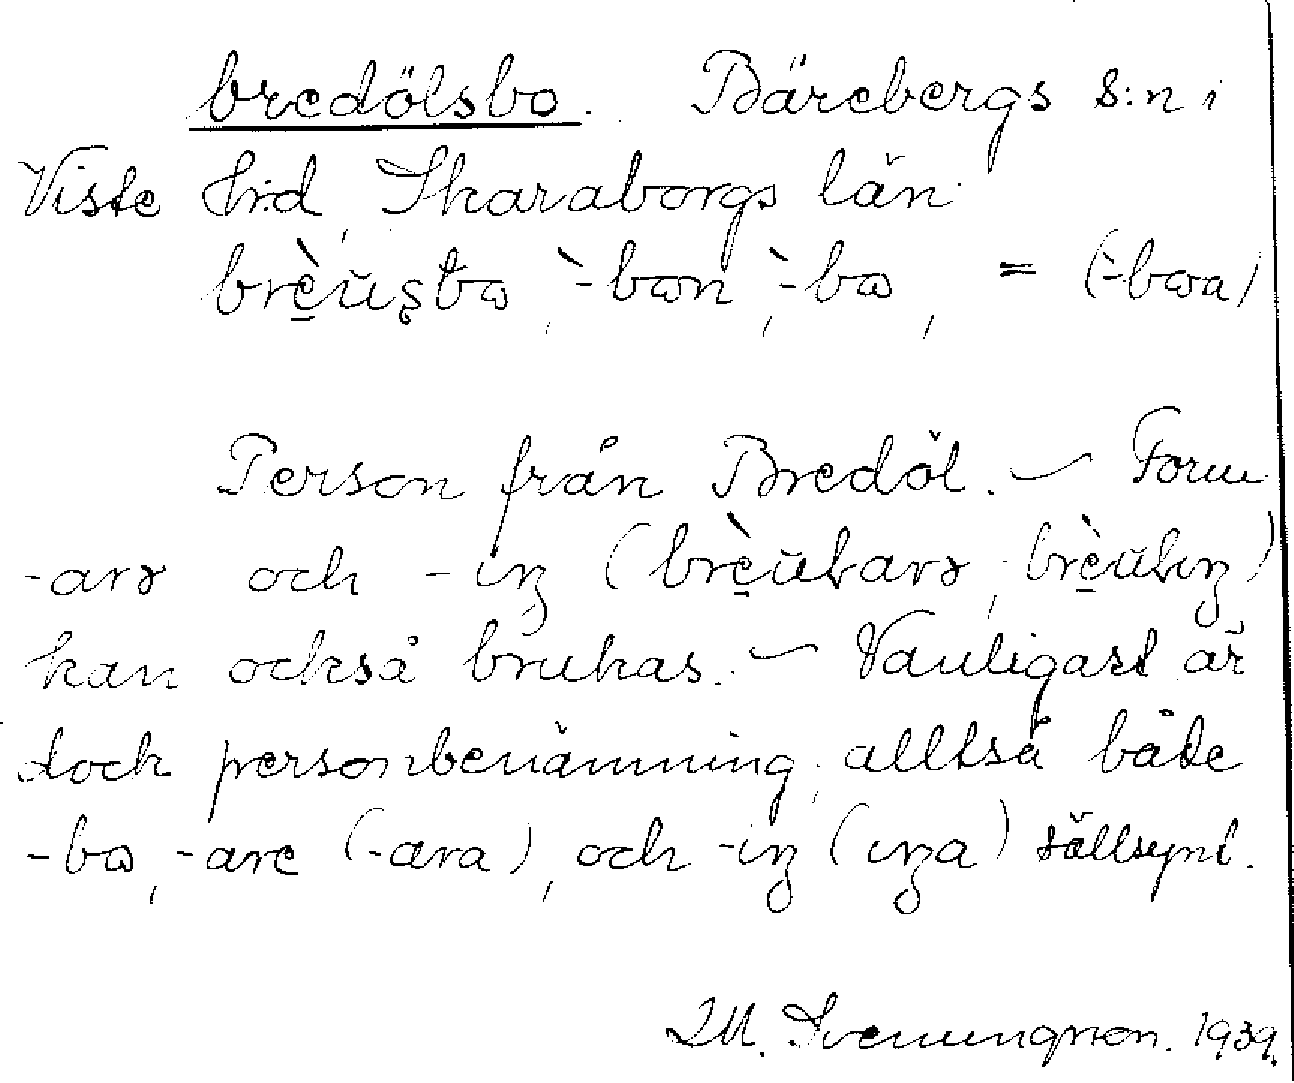 bredölsbo. Bärebergs s:n i
Viste h:d, Skaraborgs län.
brèŭșbω, `-bωn, `-bω, = (`-bωa)
Person från Bredöl. — Form
-arə och -iŋ (brèŭlarə, brèŭliŋ)
kan också brukas. — Vanligast är
dock personbenämning, alltså både
-bω, -are (-ara), och -iŋ (iŋa) sällsynt.
M. Svenungsson. 1939.